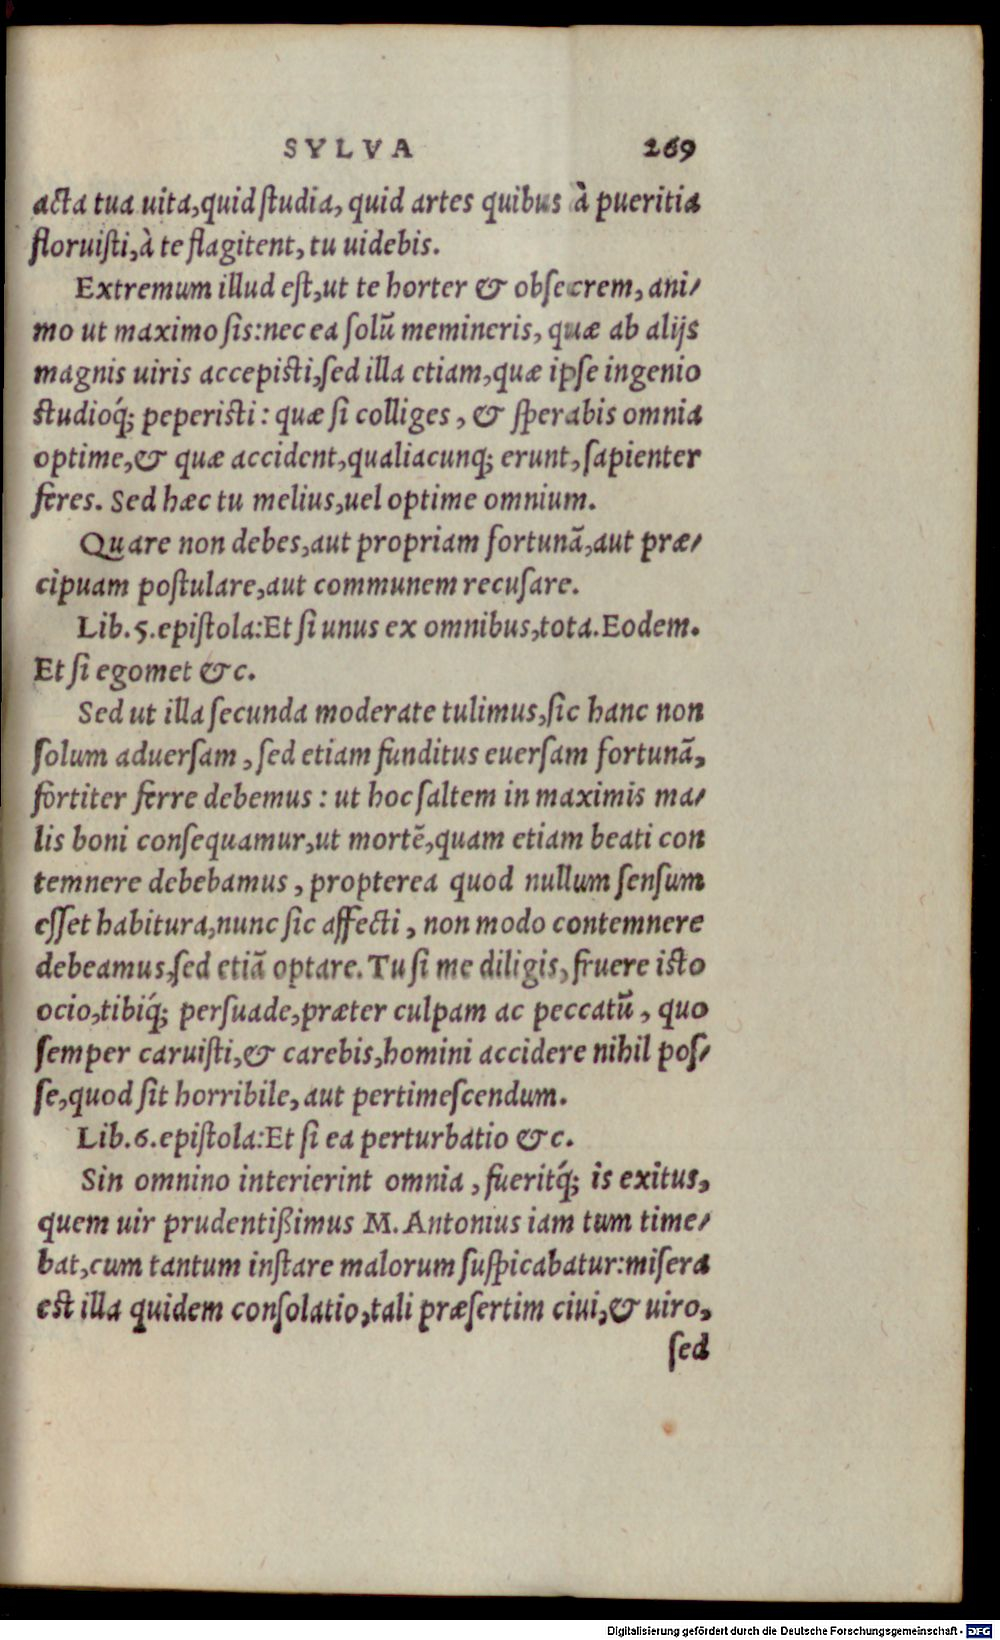 SYLVA 269
acta tua uita, quid studia, quid artes quibus à pueritia
floruisti, à te flagitent, tu uidebis.
Extremum illud est, ut te horter & obsecrem, ani/
mo ut maximo sis: nec ea solū memineris, quæ ab alijs
magnis uiris accepisti, sed illa etiam, quæ ipse ingenio
studioq́; peperisti: quæ si colliges, & sperabis omnia
optime, & quæ accident, qualiacunq; erunt, sapienter
feres. Sed hæc tu melius, uel optime omnium.
Quare non debes, aut propriam fortunā, aut præ/
cipuam postulare, aut communem recusare.
Lib. 5. epistola: Et si unus ex omnibus, tota. Eodem.
Et si egomet &c.
Sed ut illa secunda moderate tulimus, sic hanc non
solum aduersam, sed etiam funditus euersam fortunā,
fortiter ferre debemus: ut hoc saltem in maximis ma/
lis boni consequamur, ut mortē, quam etiam beati con
temnere debebamus, propterea quod nullum sensum
esset habitura, nunc sic affecti, non modo contemnere
debeamus, sed etiā optare. Tu si me diligis, fruere isto
ocio, tibiq́; persuade, præter culpam ac peccatū, quo
semper caruisti, & carebis, homini accidere nihil pos/
se, quod sit horribile, aut pertimescendum.
Lib. 6. epistola: Et si ea perturbatio &c.
Sin omnino interierint omnia, fueritq́; is exitus,
quem uir prudentißimus M. Antonius iam tum time/
bat, cum tantum instare malorum suspicabatur: misera
est illa quidem consolatio, tali præsertim ciui, & uiro,
sed
Digitalisierung gefördert durch die Deutsche Forschungsgemeinschaft - DFG